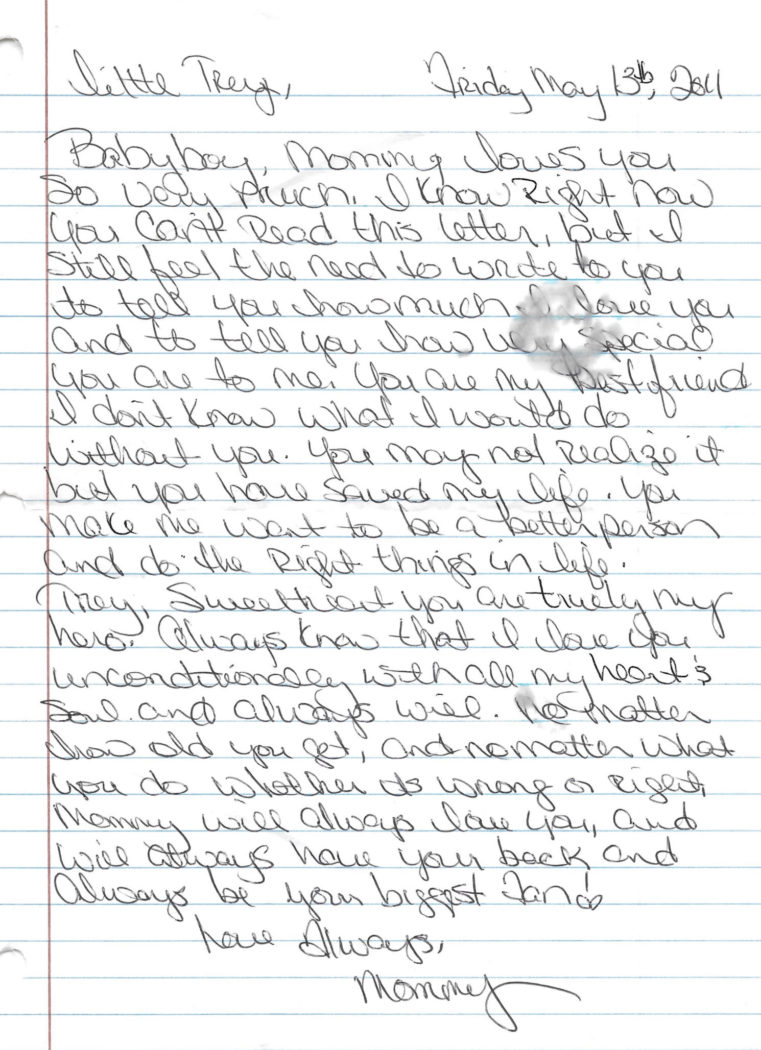 Little Trey, Friday May 13th, 2011
Babyboy, Mommy loves you
So very much. I know Right now
you can't Read this letter, but I
still feel the need to wrote to you
to tell you how much I love you
and to tell you how very special
you are to me. You are my best friend
I don't know what I would do
without you. You may not realize it
but you have saved my life. You
make me want to be a better person
and do the Right things in life.
Trey, Sweetheart you are truely my
hero. Always know that I love you
unconditionally with all my heart &
soul and always will. No matter
how old you get, and no matter what
you do whether its wrong or right,
Mommy will always love you, and
will always have your back and
Always be your biggest fan
Love Always,
Mommy